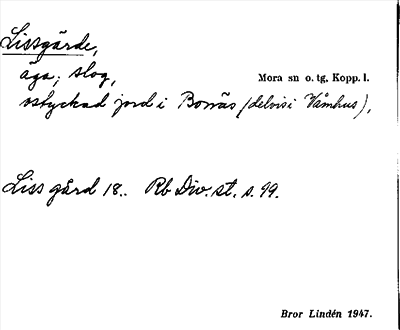 Lissgärde,
äga; slog,
Mora sn o. tg. Kopp. l.
ostyckad jord i Bonäs (delvis i Våmhus),
Liss gärd 18.. Rb Div. st. s. 99.
Bror Lindén 1947.